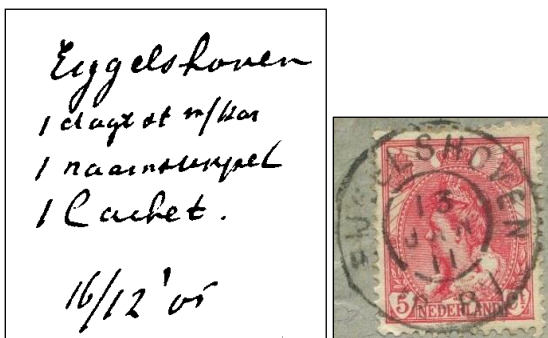 Eijgelshoven
1 dagt st m/kar
1 naamstempel
1 Cachet.
16/12 '05
EIJGELSHOVEN
13
JAN
11
5 ct
NEDERLAND